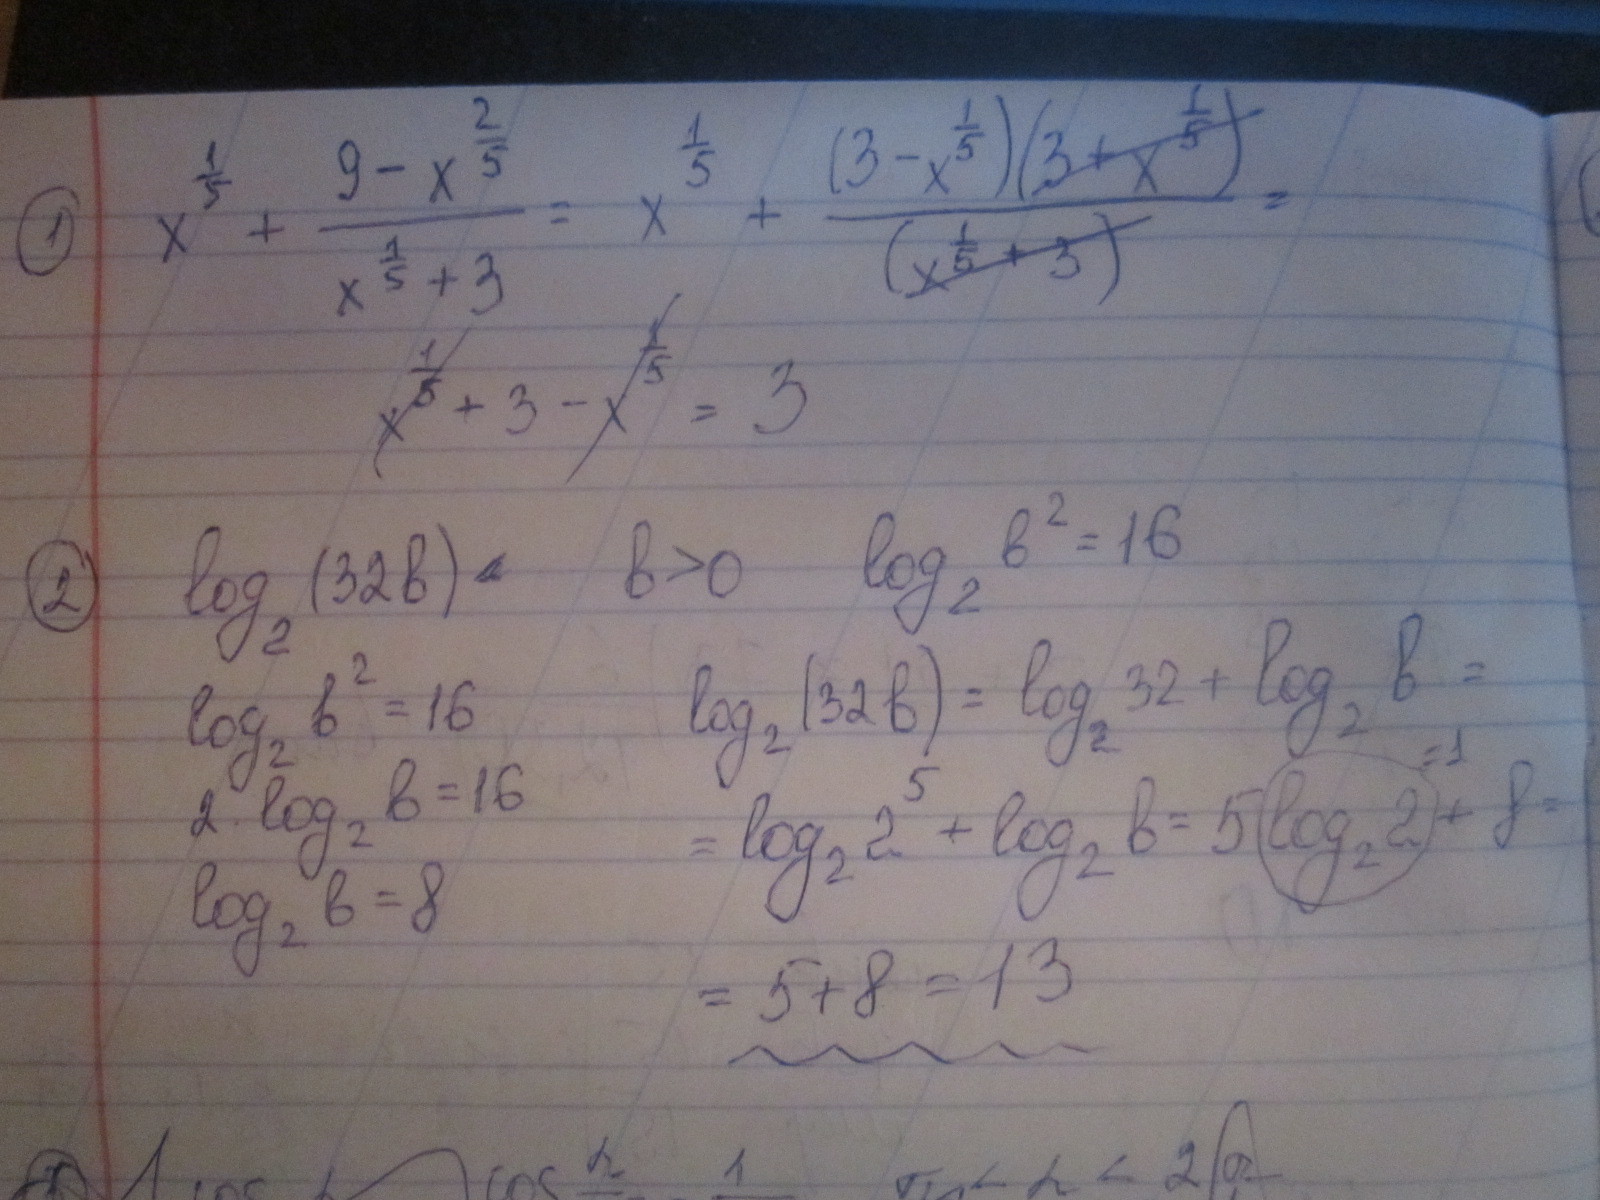 ① x^(1/5) + (9 - x^(2/5))/(x^(1/5) + 3) = x^(1/5) + ((3 - x^(1/5))(3 + x^(1/5)))/((x^(1/5) + 3)) =
x^(1/5) + 3 - x^(1/5) = 3
② log₂ (32b) b>0 log₂ b² = 16
log₂ b² = 16
2·log₂ b = 16
log₂ b = 8
log₂ (32b) = log₂ 32 + log₂ b =
= log₂ 2⁵ + log₂ b = 5 log₂ 2 + 8 =
=1
= 5+8 = 13
cos cos 1 < <2